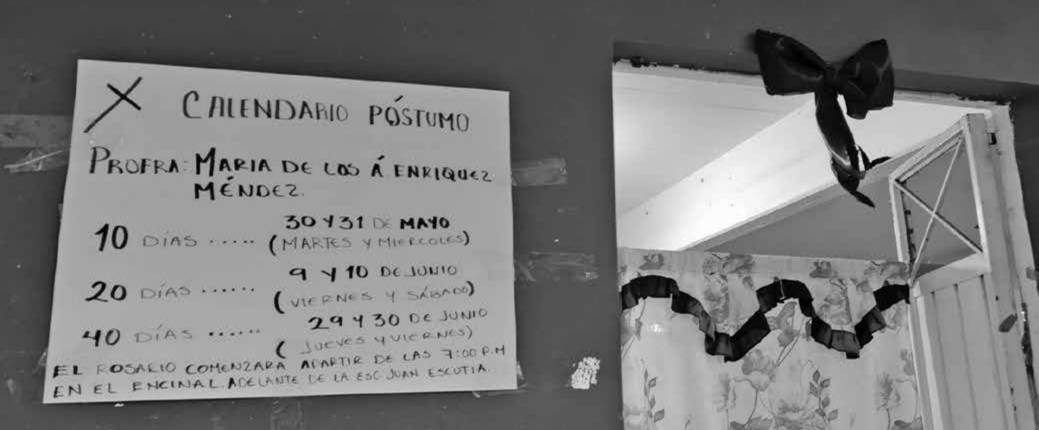 X CALENDARIO PÓSTUMO
PROFRA: MARIA DE LOS Á ENRIQUEZ
MÉNDEZ.
30 Y 31 DE MAYO
10 DÍAS ..... (MARTES Y MIERCOLES)
9 Y 10 DE JUNIO
20 DÍAS ...... (VIERNES Y SÁBADO)
29 Y 30 DE JUNIO
40 DÍAS ...... ( JUEVES Y VIERNES)
EL ROSARIO COMENZARÁ APARTIR DE LAS 7:00 P.M
EN EL ENCINAL. ADELANTE DE LA ESC JUAN ESCUTIA.